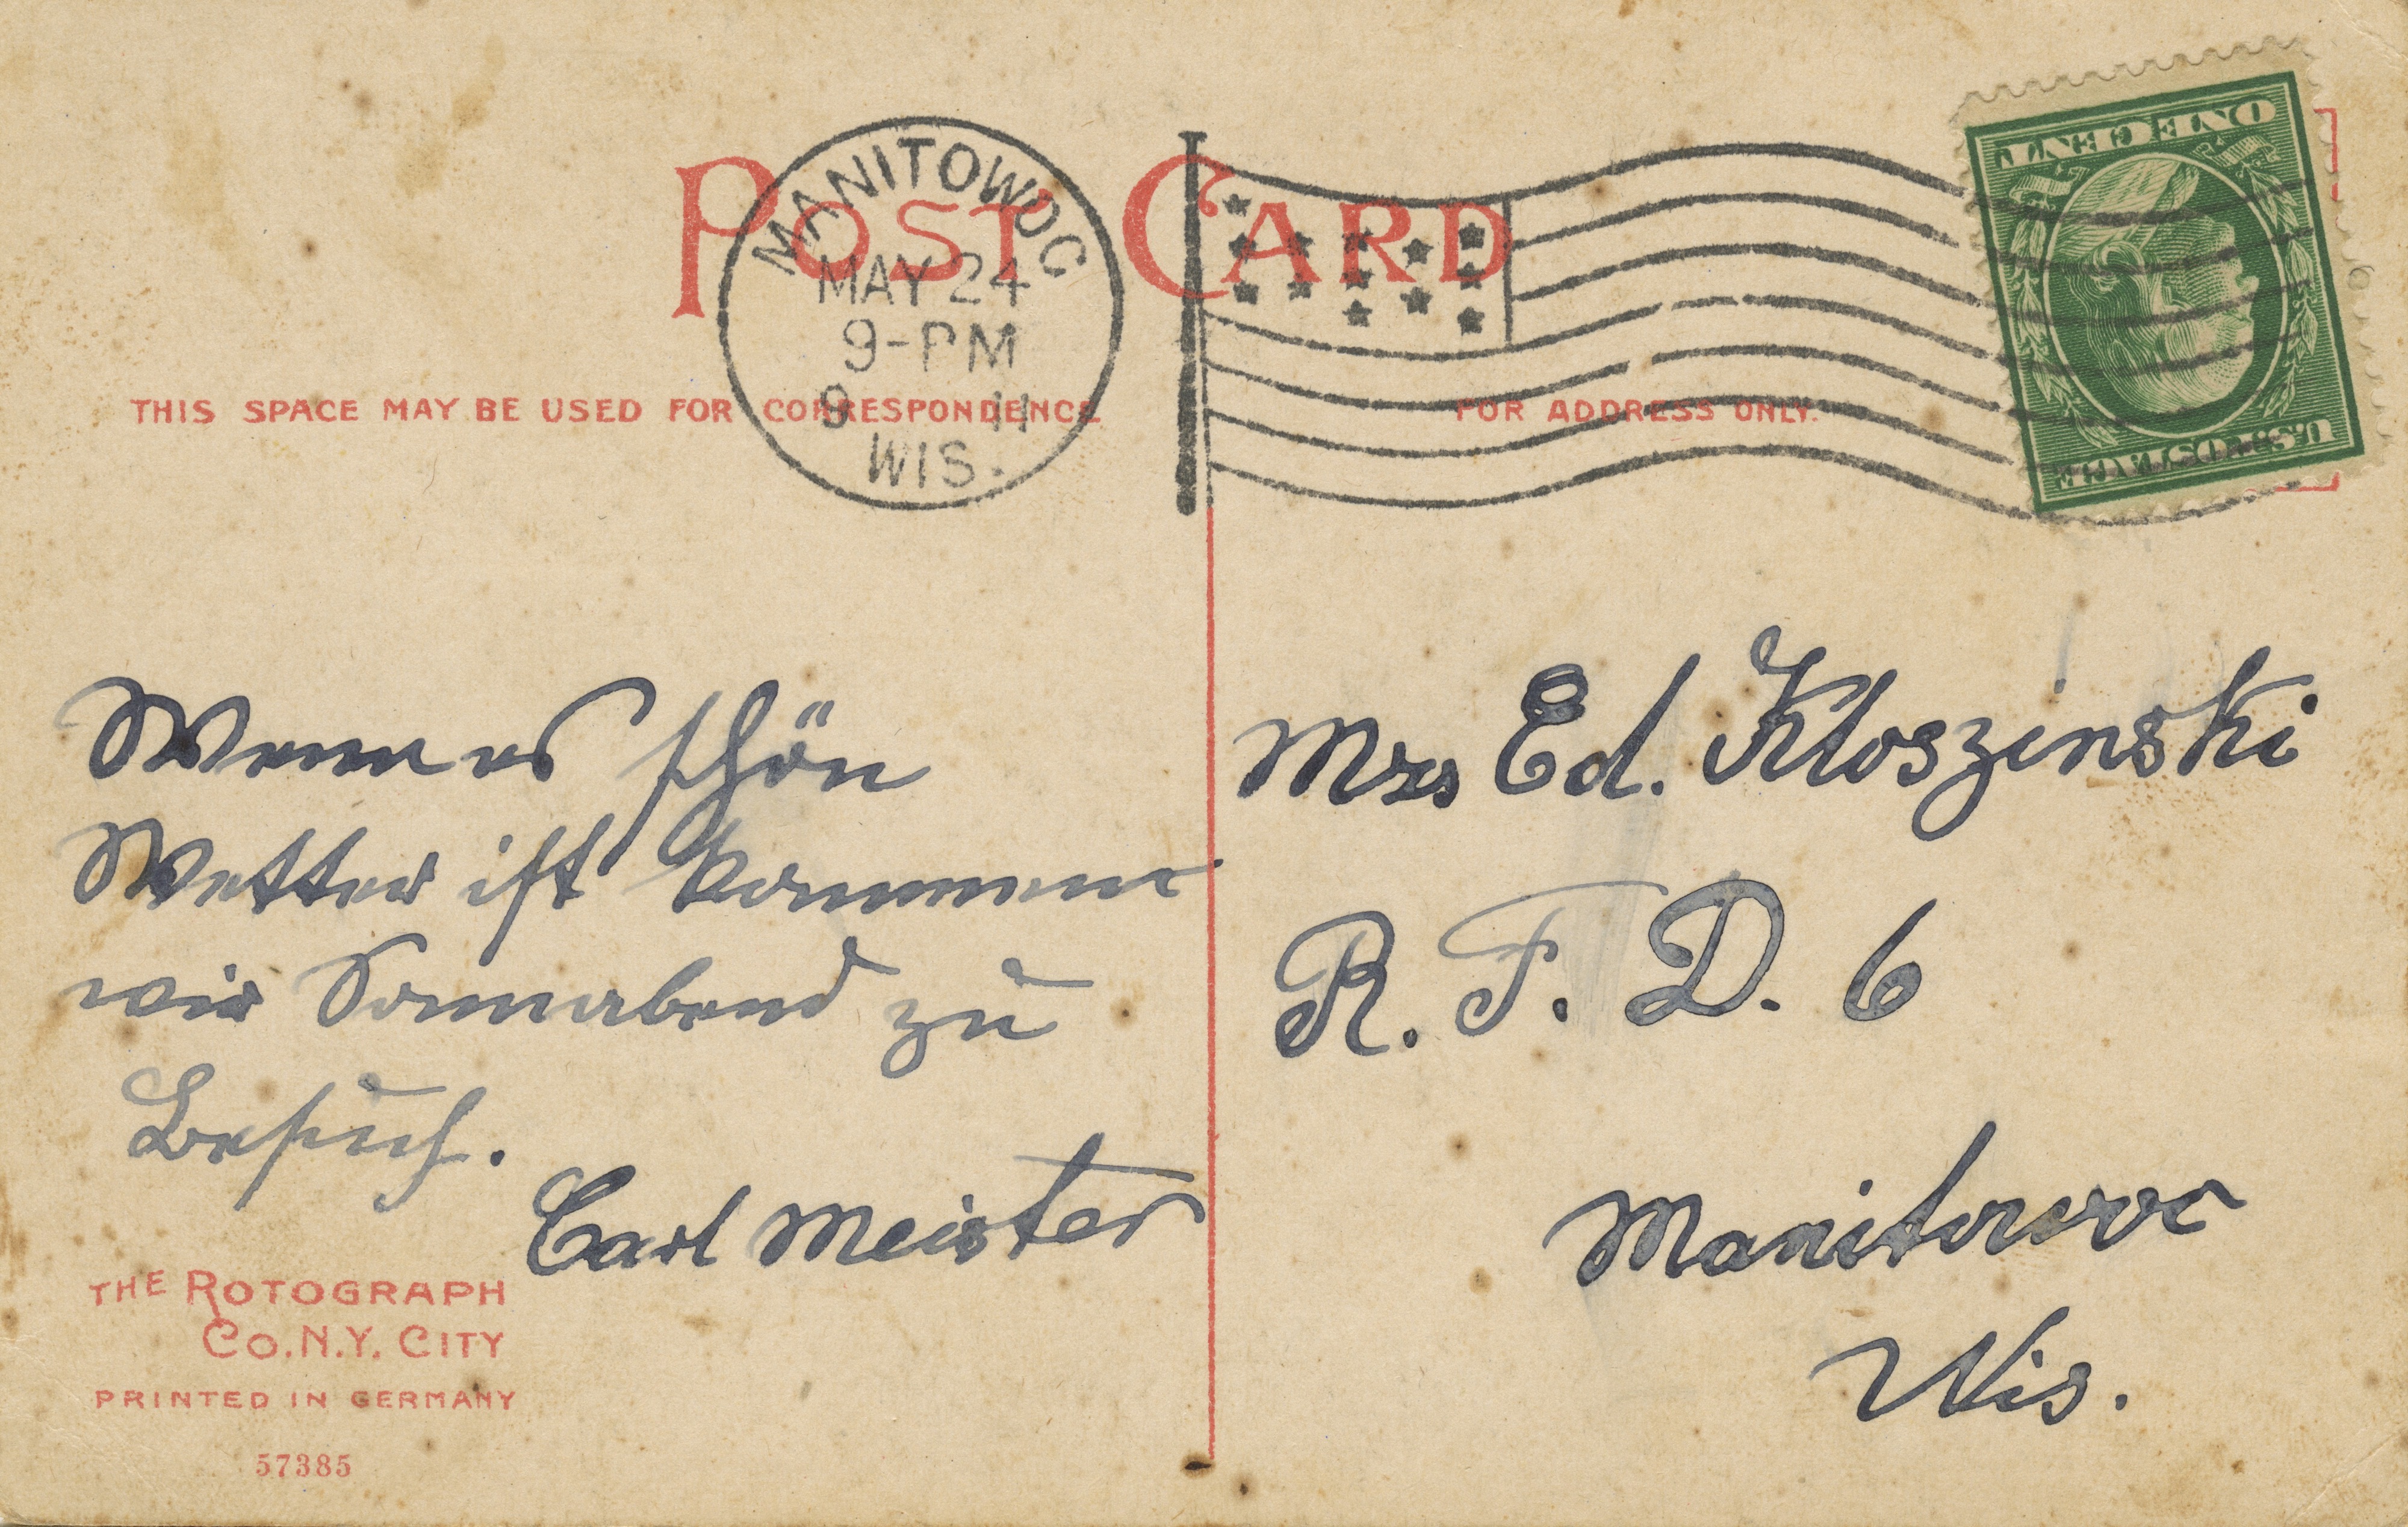 POST CARD
MANITOWOC
MAY 24
9-PM
11
WIS.
THIS SPACE MAY BE USED FOR CORRESPONDENCE
FOR ADDRESS ONLY.
U.S. POSTAGE
ONE CENT
Wenn es schön
Wetter ist kommen
wir Sonnabend zu
Besuch.
Carl Meister
Mrs Ed. Kloszinski
R. F. D. 6
Manitowoc
Wis.
THE ROTOGRAPH
CO. N.Y. CITY
PRINTED IN GERMANY
57385